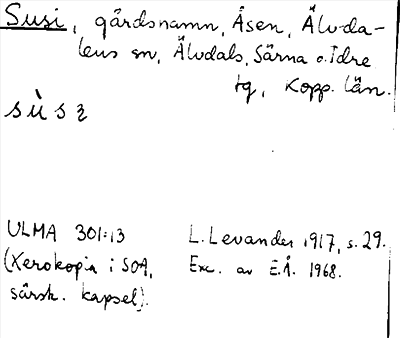 Susi, gårdsnamn, Åsen, Älvda-
lens sn, Älvdals, Särna o. Idre
tg, Kopp. län.
sùsz
ULMA 301:13
(Xerokopia i SOA,
särsk. kapsel).
L. Levander 1917, s. 29.
Exc. av E.Å. 1968.